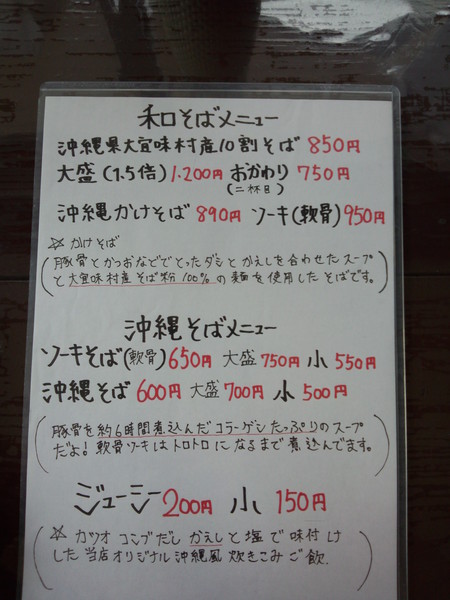 和そばメニュー
沖縄県大宜味村産10割そば 850円
大盛(1.5倍)1.200円 おかわり 750円
(二杯目)
沖縄かけそば 890円 ソーキ(軟骨)950円
☆ かけそば
豚骨とかつおなどでとったダシとかえしを合わせたスープ
と大宜味村産そば粉100%の麺を使用したそばです。
沖縄そばメニュー
ソーキそば(軟骨)650円 大盛 750円 小 550円
沖縄そば 600円 大盛 700円 小 500円
豚骨を約6時間煮込んだコラーゲンたっぷりのスープ
だよ!軟骨ソーキはトロトロになるまで煮込んでます。
ジューシー 200円 小 150円
☆ カツオ コンブだし かえしと塩で味付け
した当店オリジナル沖縄風炊きこみご飯.